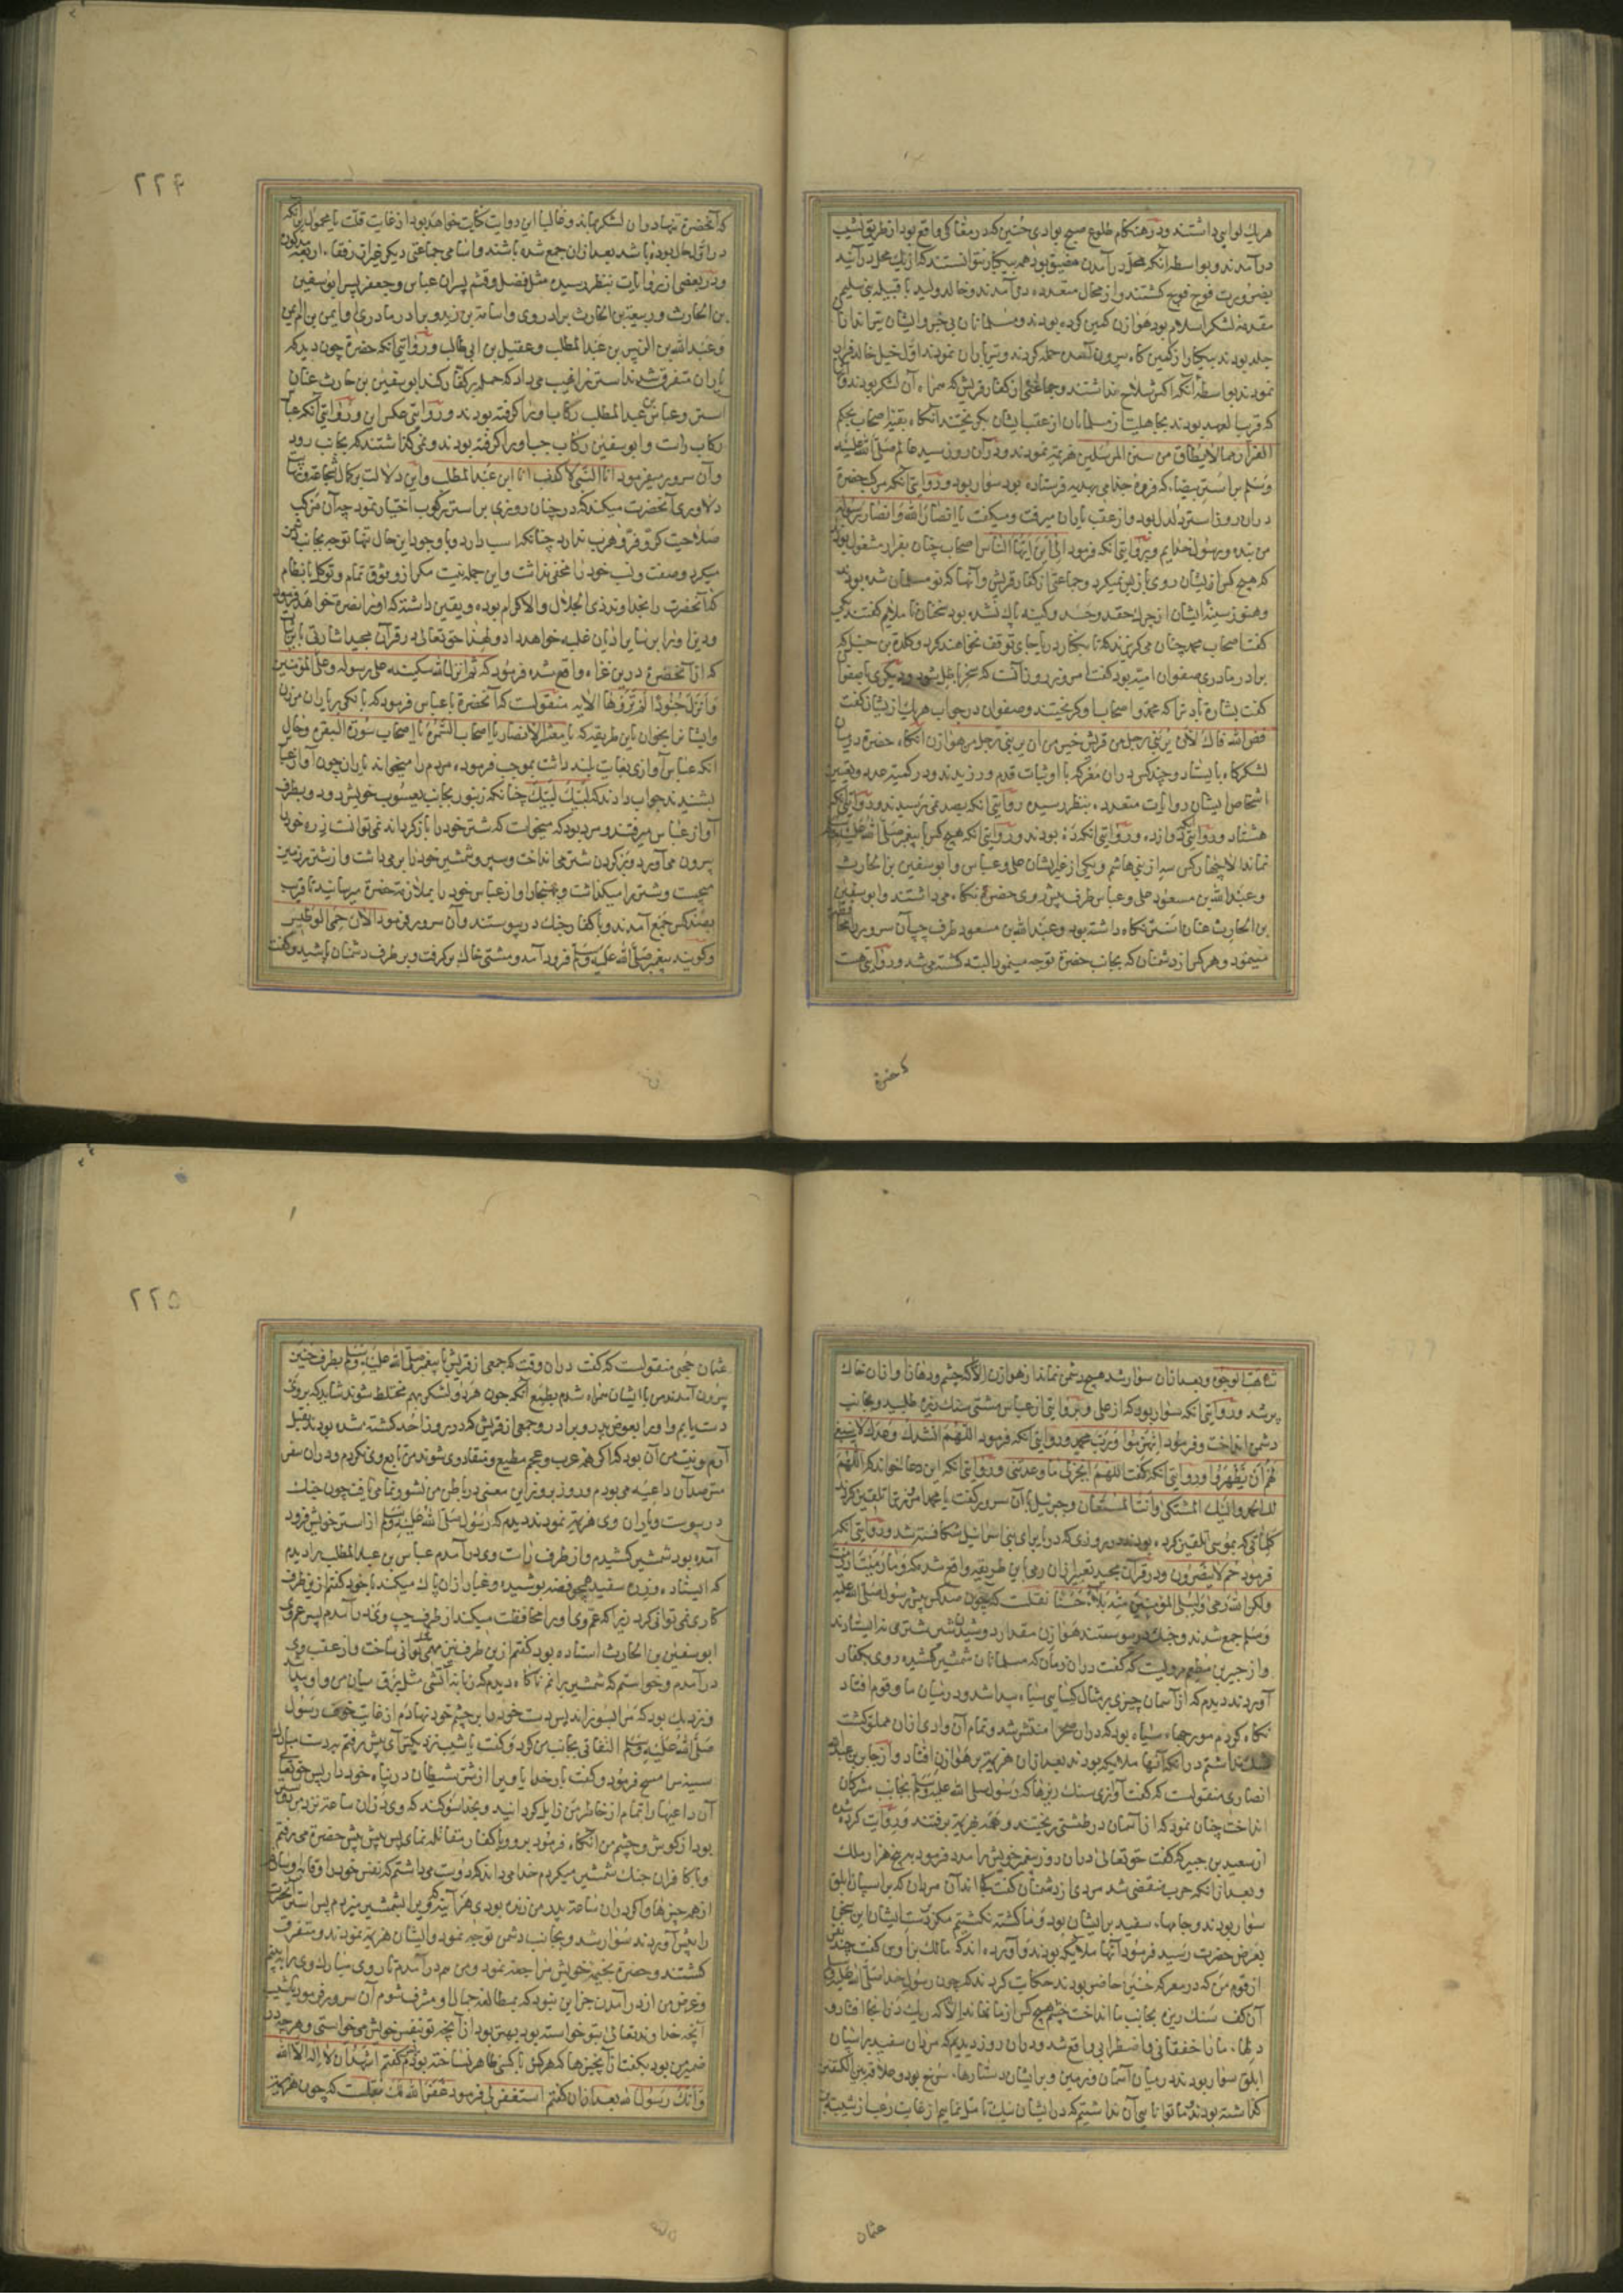 هریك لوایی داشتند ودر هنكام طلوع صبح بوادی حنین كه در مغاكی واقع بود از طریق نشیب
در آمدند وبواسطه آنكه محل در آمدن مضیق بود همه بیكبار نتوانستند كه از یك محل در آیند
بضرورت فوج فوج كشتند واز محال متعدده در آمدند وخالد ولید با قبیله بنی سلیم
مقدمه لشكر اسلام بود هوازن كمین كرده بودند ومسلمانان بی خبر وایشان تیراندازان
جلد بودند بیكبار از كمین كاه بیرون آمدند حمله كردند وتیرباران نمودند اول خیل خالد فرار
نمودند بواسطه آنكه اكثر سلاح نداشتند وجماعتی از كفار قریش كه همراه آن لشكر بودند
كه قریب العهد بودند بجاهلیت از مسلمانان از عقب ایشان بكریختند آنكاه بقیه اصحاب بحكم
الفرار مما لا یطاق من سنن المرسلین هزیمة نمودند ودر آن روز سید عالم صلی الله علیه
وسلم بر استر بیضاء كه فروه جذامی بهدیه فرستاده بود سوار بود ودر روایتی آنكه مركب حضرة
در ان روز استر دلدل بود واز عقب یاران میرفت ومیكفت یا انصار الله وانصار رسوله
من بنده ورسول خدایم وبروایتی آنكه فرمود الی این ایها الناس اصحاب چنان بفرار مشغول بودند
كه هیچ كس از ایشان روی باز پس نمیكرد وجماعتی از كفار قریش وآنها كه نو مسلمان شده بودند
وهنوز سینه ایشان از چرك حقد وحسد وكینه پاك نشده بود سخنان ناملایم كفتند یكی
كفت اصحاب محمد چنان می كریزند كه تا بكنار دریا جای توقف نخواهند كرد وكلدة بن حنبل كه
برادر مادری صفوان امیه بود كفت امروز روز آنست كه سحر باطل شود ودیكری با صفوان
كفت بشارة باد ترا كه محمد واصحاب او بكریختند وصفوان در جواب هریك از ایشان كفت
فض الله فاك لان یربنی رجل من قریش خیر من ان یربنی رجل من هوازن آنكاه حضرة در میان
لشكركاه بایستاد وچند كس در ان معركه با او ثبات قدم ورزیدند ودر كمیت عدد وتعیین
اشخاص ایشان روایات متعدده بنظر رسیده روایتی آنكه بصد نمی رسیدند ودر روایتی آنكه
هشتاد ودر روایتی آنكه دوازده ودر روایتی آنكه ده بودند ودر روایتی آنكه هیچ كس با پیغمبر صلی الله علیه وسلم
نماند الا چهار كس سه از بنی هاشم ویكی از غیر ایشان علی وعباس وابوسفین بن الحارث
وعبد الله بن مسعود علی وعباس طرف پیش روی حضرة نكاه می داشتند وابوسفین
بن الحارث عنان استر نكاه داشته بود وعبد الله بن مسعود طرف چپ آن سرور را محافظه
مینمود وهر كس از دشمنان كه بجانب حضرة توجه مینمود البته كشته می شد ودر روایتی هست
كه حضرة
۲۲۴
كه آنحضرة تنها در ان لشكر بماند وغالبا این روایت كنایت خواهد بود از غایت قلت یا محمول برآنكه
در اول حال بوده باشد بعد از ان جمع شده باشند واسامی جماعتی دیكر غیر از رفقاء اربعه مذكوره
ودر بعضی از روایات بنظر رسیده مثل فضل وقثم پسران عباس وجعفر پسر ابوسفین
بن الحارث وربیعة بن الحارث برادر وی واسامة بن زید وبرادر مادری او ایمن بن ام ایمن
وعبد الله بن الزبیر بن عبد المطلب وعقیل بن ابی طالب ودر روایتی آنكه حضرة چون دید كه
یاران متفرق شدند استر را نهیب می داد كه حمله بر كفار كند ابوسفین بن حارث عنان
استر وعباس بن عبد المطلب ركاب او را كرفته بودند ودر روایتی عكس این ودر روایتی آنكه عباس
ركاب راست وابوسفین ركاب چپ او را كرفته بودند ونمی كذاشتند كه بجانب رود
وآن سرور میفرمود انا النبی لا كذب انا ابن عبد المطلب واین دلالت بر كمال شجاعت ونهایت
دلاوری آنحضرت میكند كه در چنان روزی بر استر ركوب اختیار نمود چه آن مركب
صلاحیت كر وفر وهرب ندارد چنانكه اسب دارد وبا وجود این حال تنها توجه بجانب دشمن
میكرد وصفت ونسب خود را مخفی نداشت واین جمله نیست مكر از وثوق تمام وتوكل با نظام
كه آنحضرت را بخداوند ذی الجلال والاكرام بوده ویقین داشته كه او را نصرة خواهد فرمود
ودین او را بر سایر ادیان غلبه خواهد داد ولهذا حق تعالی در قرآن مجید اشارتی باین ثبات
كه از آنحضرة درین غزاء واقع شده فرمود كه ثم انزل الله سكینته علی رسوله وعلی المؤمنین
وانزل جنودا لم تروها الآیه منقولست كه آنحضرة با عباس فرمود كه بانكی بر یاران من زن
وایشانرا بخوان باین طریقه كه یا معشر الانصار یا اصحاب السمرة یا اصحاب سورة البقره وحال
آنكه عباس آوازی بغایت بلند داشت بموجب فرموده مردم را میخواند یاران چون آواز عباس
بشنیدند جواب دادند كه لبیك لبیك چنانكه زنبور بجانب یعسوب خویش رود وبطرف
آواز عباس میرفتند ومرد بود كه میخواست كه شتر خود را بازكرداند نمی توانست زره خود
بیرون می آورد ودر كردن شتر می انداخت وسپر وشمشیر خود را برمی داشت واز شتر بر زمین
میجست وشتر را میكذاشت وبهنجار اواز عباس خود را بملازمت حضرة میرسانید تا قریب
بصد كس جمع آمدند وبا كفار جنك در پیوستند وآن سرور فرمود الآن حمی الوطیس
وكویند پیغمبر صلی الله علیه وسلم فرود آمد ومشتی خاك بركرفت وبر طرف دشمنان پاشید وكفت
شاهت الوجوه وبعد از ان سوار شد هیچ دشمن نماند از هوازن الا كه چشم ودهان او از ان خاك
پر شد ودر روایتی آنكه سوار بود كه از علی وبروایتی از عباس مشتی سنك ریزه طلبید وبجانب
دشمن انداخت وفرمود انهزموا ورب محمد ودر روایتی آنكه فرمود اللهم انشدك وعدك لا ینبغی
لهم ان یظهروا ودر روایتی آنكه كفت اللهم انجز لی ما وعدتنی ودر روایتی آنكه این دعا خواند كه اللهم
لك الحمد والیك المشتكی وانت المستعان وجبرئیل با آن سرور كفت یا محمد امروز ترا تلقین كردند
كلماتی كه بموسی تلقین كرده بودند در روزی كه دریا برای بنی اسرائیل شكافته شد ودر روایتی آنكه
فرمود حم لا ینصرون ودر قرآن مجید تعبیر از ان رمی باین طریقه واقع شد كه وما رمیت اذ رمیت
ولكن الله رمی ولیبلی المؤمنین منه بلاء حسنا نقلست كه چون صد كس پیش رسول صلی الله علیه
وسلم جمع شدند وجنك در پیوستند هوازن مقدار دوشیدن شیر شتری نه ایستادند
واز جبیر بن مطعم مرویست كه كفت در ان زمان كه مسلمانان شمشیر كشیده روی بكفار
آوردند دیدم كه از آسمان چیزی بر مثال كسایی سیاه پیدا شد ودر میان ما وقوم افتاد
نكاه كردم مورچهاء سیاه بود كه در ان صحرا منتشر شد وتمام آن وادی از ان مملو كشت
شك نداشتم در انكه آنها ملایكه بودند بعد از ان هزیمة بر هوازن افتاد واز جابر بن عبدالله
انصاری منقولست كه كفت آوازی سنك ریزها كه رسول صلی الله علیه وسلم بجانب مشركان
انداخت چنان نمود كه از آسمان در طشتی ریختند وهمه بهزیمة برفتند وروایت كرده شده
از سعید بن جبیر كه كفت حق تعالی در ان روز پیغمبر خویش را مدد فرمود به پنج هزار ملك
وبعد از آنكه حرب منقضی شد مردی از دشمنان كفت كجا اند آن مردان كه بر اسپان ابلق
سوار بودند وجامهاء سفید بر ایشان بود وما كشته نكشتیم مكر بدست ایشان این سخن
بعرض حضرت رسید فرمود آنها ملایكه بودند وآورده اند كه مالك بن اوس كفت چند نفر
از قوم من كه در معركه حنین حاضر بودند حكایت كردند كه چون رسول خدا صلی الله علیه وسلم
آن كف سنك ریزه بجانب ما انداخت هیچ كس از ما نماند الا كه ریك در انجا افتاد و
دلهاء ما را خفقانی واضطرابی واقع شد ودر ان روز دیدیم كه مردان سفید بر اسپان
ابلق سوار بودند در میان آسمان وزمین وبر ایشان دستارهاء سرخ بود وعلاقه بین الكتفین
كذاشته بودند وما توانایی آن نداشتیم كه در ایشان نیك تامل نماییم از غایت رعب از شیبة بن
عثمان
۲۲۵
عثمان حجبی منقولست كه كفت در ان وقت كه جمعی از قریش با پیغمبر صلی الله علیه وسلم بطرف حنین
بیرون آمدند من با ایشان همراه شدم بطمع آنكه چون هر دو لشكر بهم مختلط شوند شاید كه بر وی
دست یابم واو را بعوض پدر وبرادر وجمعی از قریش كه در روز احد كشته شده بودند بقتل
آرم ونیت من آن بود كه اكر همه عرب وعجم مطیع ومنقاد وی شوند من تابع وی نكردم ودر ان سفر
مترصد آن داعیه می بودم وروز بروز این معنی در باطن من نشو ونما می یافت چون جنك
در پیوست ویاران وی هزیمة نمودند دیدم كه رسول صلی الله علیه وسلم از استر خویش فرود
آمده بود شمشیر كشیدم واز طرف راست وی در آمدم عباس بن عبد المطلب را دیدم
كه ایستاده وزره سفید همچو فضه پوشیده وغبار از ان پاك میكند با خود كفتم ازین طرف
كاری نمی توانی كرد زیرا كه عم وی او را محافظت میكند از طرف چپ وی در آمدم پسر عم وی
ابوسفین بن الحارث استاده بود كفتم ازین طرف نیز مهمی نتوانی ساخت واز عقب وی
در آمدم وخواستم كه شمشیر برانم ناكاه دیدم كه زبانه آتشی مثل برق میان من واو پیدا شد
ونزدیك بود كه مرا بسوزاند پس دست خود را بر چشم خود نهادم از غایت خوف رسول
صلی الله علیه وسلم التفاتی بجانب من كرد وكفت یا شیب نزدیك من آی پیش رفتم پس دست مبارك
بر سینه من مسح فرمود وكفت بار خدایا ویرا از شر شیطان در پناه خود دار پس حق تعالی
آن داعیها را بتمام از خاطر من زایل كردانید وبخدا سوكند كه وی در ان ساعة نزد من
بود از كوش وچشم من آنكاه فرمود برو وبا كفار مقاتله نمای پس پیش پیش حضرة می رفتم
وبا كافران جنك شمشیر میكردم خدا می داند كه دوست می داشتم كه نفس خود را وقایه وی سازم
از همه چیزها واكر در ان ساعة پدر من زنده بودی هر آینه كه ویرا بشمشیر میزدم پس استر آنحضرت
را پیش آوردند سوار شد وبجانب دشمن توجه نمود وایشان هزیمة نمودند ومتفرق
كشتند وحضرة بخیمه خویش مراجعه نمود ومن هم در آمدم تا روی مبارك وی را بینم
وغرض من از در آمدن جز این نبود كه بمطالعه جمال او مشرف شوم آن سرور فرمود یا شیب
آنچه خداوند تعالی بتو خواسته بود بهتر بود از آنچه تو بنفس خویش می خواستی وهرچه در
ضمیر من بود بكفت از آنچیزها كه هركز با كسی ظاهر نساخته بودم كفتم اشهد ان لا اله الا الله
وانك رسول الله بعد از ان كفتم استغفر لی فرمود غفر الله لك نقلست كه چون هزیمة